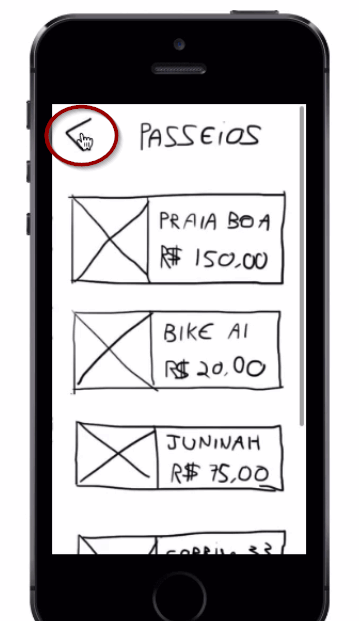 PASSEIOS
PRAIA BOA
R$ 150,00
BIKE AI
R$ 20,00
JUNINAH
R$ 75,00